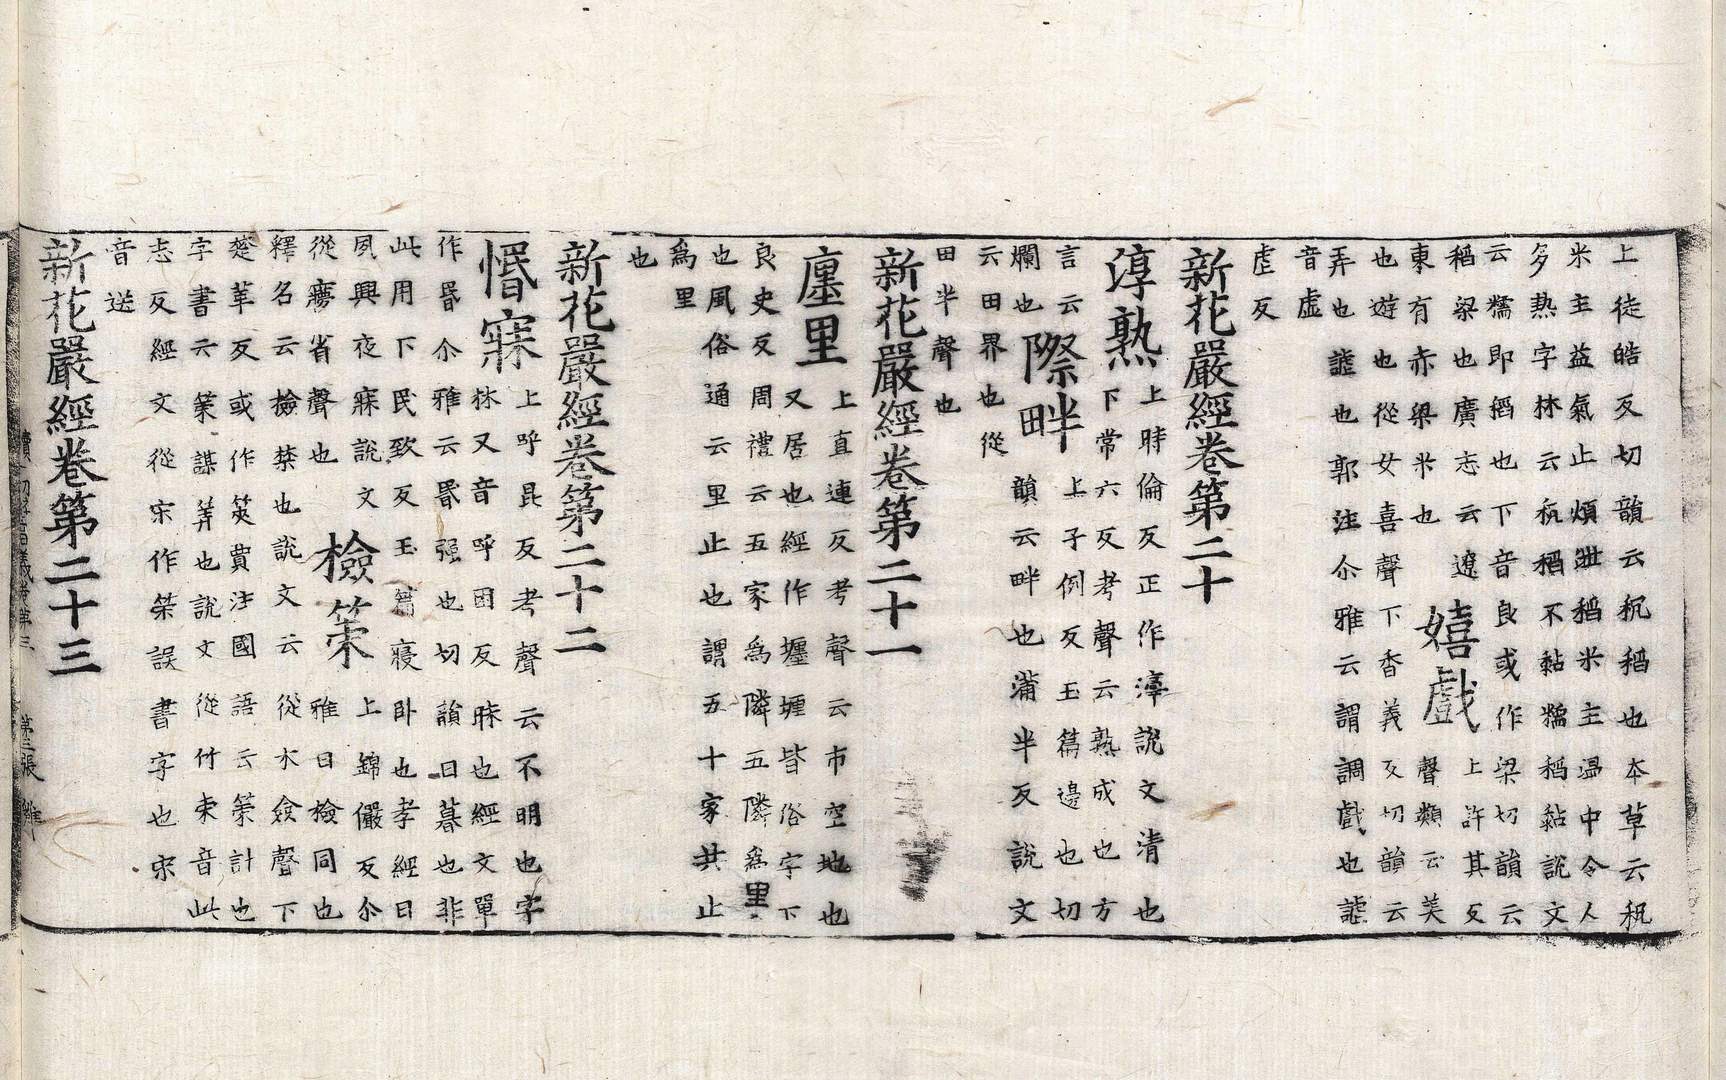 上徒皓反切韻云秔稻也本草云秔
米主益氣止煩泄稻米主温中令人
多熱字林云秔稻不黏糯稻黏說文
云糯即稻也下音良或作梁切韻云
稻梁也廣志云遼
東有赤梁米也
嬉戲
上許其反
聲類云美
也遊也從女喜聲下香義反切韻云
弄也謔也郭注尒雅云謂調戲也謔
音虛
虐反
新花嚴經卷第二十
淳熟
上時倫反正作說文清也
下常六反考聲云熟成也方
言云
爛也
際畔
上子例反玉篇邊也切
韻云畔也蒲半反說文
云田界也從
田半聲也
新花嚴經卷第二十一
廛里
上直連反考聲云市空地也
又居也經作壥皆俗字下
良史反周禮云五家爲隣五隣爲里
也風俗通云里止也謂五十家共止
爲里
也
新花嚴經卷第二十二
惛寐
上呼昆反考聲云不明也字
林又音呼困反眛也經文單
作昬尒雅云昬强也切韻日暮也非
此用下民致反玉篇寢卧也孝經曰
夙興夜寐說文
從㝱省聲也
檢策
上錦儼反尒
雅曰檢同也
釋名云檢禁也說文云從木僉聲下
楚革反或作筴賈注國語云策計也
字書云策謀筭也說文從竹朿音此
恣反經文從宋作筞誤書字也宋
音送
新花嚴經卷第二十三
續切經音義卷第三 第三張